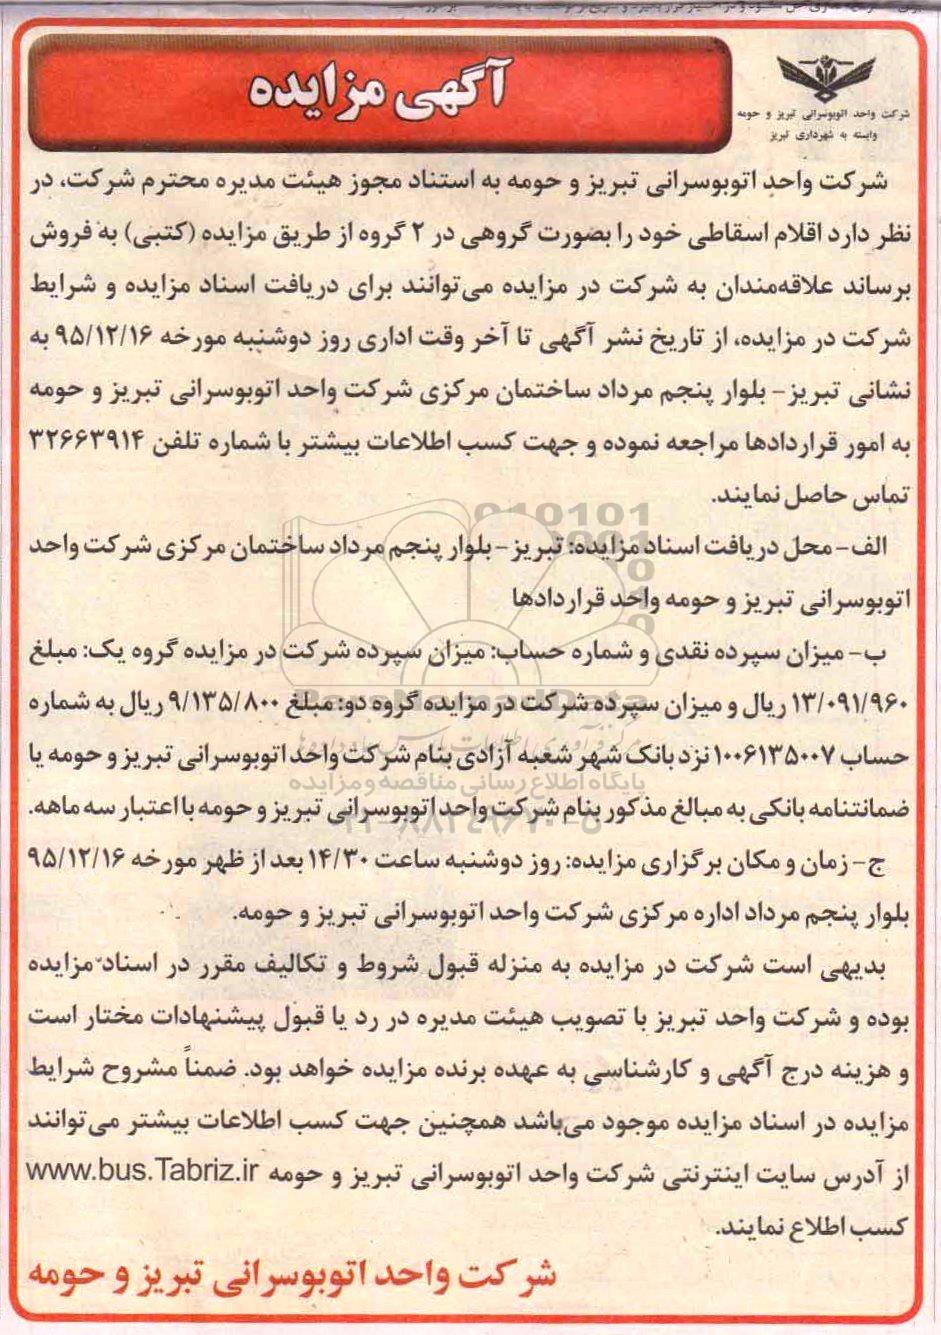 آگهی مزایده
شرکت واحد اتوبوسرانی تبریز و حومه
وابسته به شهرداری تبریز
شرکت واحد اتوبوسرانی تبریز و حومه به استناد مجوز هیئت مدیره محترم شرکت، در
نظر دارد اقلام اسقاطی خود را بصورت گروهی در ۲ گروه از طریق مزایده (کتبی) به فروش
برساند علاقه‌مندان به شرکت در مزایده می‌توانند برای دریافت اسناد مزایده و شرایط
شرکت در مزایده، از تاریخ نشر آگهی تا آخر وقت اداری روز دوشنبه مورخه ۹۵/۱۲/۱۶ به
نشانی تبریز- بلوار پنجم مرداد ساختمان مرکزی شرکت واحد اتوبوسرانی تبریز و حومه
به امور قراردادها مراجعه نموده و جهت کسب اطلاعات بیشتر با شماره تلفن ۳۲۶۶۳۹۱۴
تماس حاصل نمایند.
الف- محل دریافت اسناد مزایده: تبریز - بلوار پنجم مرداد ساختمان مرکزی شرکت واحد
اتوبوسرانی تبریز و حومه واحد قراردادها
ب- میزان سپرده نقدی و شماره حساب: میزان سپرده شرکت در مزایده گروه یک: مبلغ
۱۳/۰۹۱/۹۶۰ ریال و میزان سپرده شرکت در مزایده گروه دو: مبلغ ۹/۱۳۵/۸۰۰ ریال به شماره
حساب ۱۰۰۶۱۳۵۰۰۷ نزد بانک شهر شعبه آزادی بنام شرکت واحد اتوبوسرانی تبریز و حومه یا
ضمانتنامه بانکی به مبالغ مذکور بنام شرکت واحد اتوبوسرانی تبریز و حومه با اعتبار سه ماهه.
ج- زمان و مکان برگزاری مزایده: روز دوشنبه ساعت ۱۴/۳۰ بعد از ظهر مورخه ۹۵/۱۲/۱۶
بلوار پنجم مرداد اداره مرکزی شرکت واحد اتوبوسرانی تبریز و حومه.
بدیهی است شرکت در مزایده به منزله قبول شروط و تکالیف مقرر در اسناد مزایده
بوده و شرکت واحد تبریز با تصویب هیئت مدیره در رد یا قبول پیشنهادات مختار است
و هزینه درج آگهی و کارشناسی به عهده برنده مزایده خواهد بود. ضمناً مشروح شرایط
مزایده در اسناد مزایده موجود می‌باشد همچنین جهت کسب اطلاعات بیشتر می‌توانند
از آدرس سایت اینترنتی شرکت واحد اتوبوسرانی تبریز و حومه www.bus.Tabriz.ir
کسب اطلاع نمایند.
شرکت واحد اتوبوسرانی تبریز و حومه
ParsNamadData
پایگاه اطلاع رسانی مناقصه و مزایده